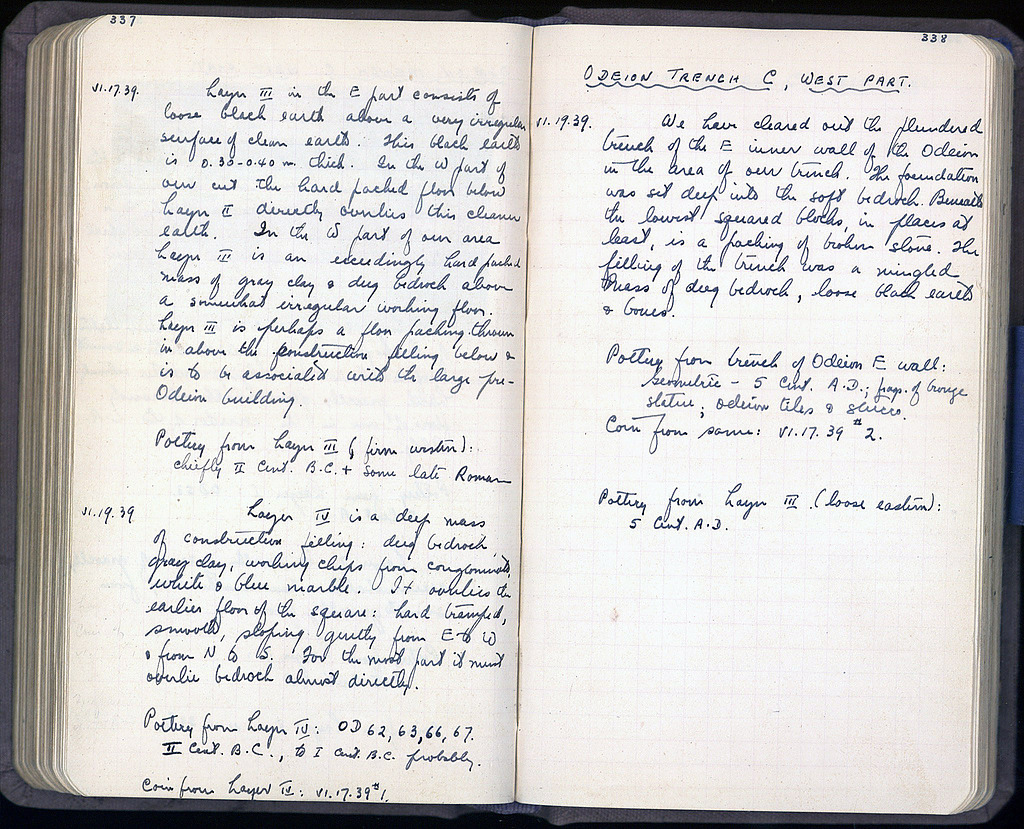 337
VI.17.39. Layer III in the E part consists of
loose black earth above a very irregular
surface of clean earth. This black earth
is 0.30-0.40 m thick. In the W part of
our cut the hard packed floor below
Layer II directly overlies this cleaner
earth. In the W part of our area
Layer III is an exceedingly hard packed
mass of gray clay & dug bedrock above
a somewhat irregular working floor.
Layer III is perhaps a floor packing thrown
in above the construction filling below &
is to be associated with the large pre-
Odeion building.
Pottery from Layer III (firm western):
chiefly II Cent. B.C. + some late Roman
VI.19.39 Layer IV is a deep mass
of construction filling: dug bedrock,
gray clay, working chips from conglomerate,
white & blue marble. It overlies the
earlier floor of the square: hard tramped,
smooth, sloping gently from E to W
& from N to S. For the most part it must
overlie bedrock almost directly.
Pottery from Layer IV: OD 62, 63, 66, 67.
II Cent. B.C., to I Cent. B.C. probably.
Coin from Layer IV: VI.17.39 #1.
338
ODEION TRENCH C, WEST PART.
VI.19.39. We have cleared out the plundered
trench of the E inner wall of the Odeion
in the area of our trench. The foundation
was set deep into the soft bedrock. Beneath
the lowest squared blocks, in places at
least, is a packing of broken stone. The
filling of the trench was a mingled
mass of dug bedrock, loose black earth
& bones.
Pottery from trench of Odeion E wall:
Geometric - 5 Cent. A.D.; frag. of bronze
statue; odeion tiles & stucco.
Coin from same: VI.17.39 #2.
Pottery from Layer III (loose eastern):
5 Cent. A.D.